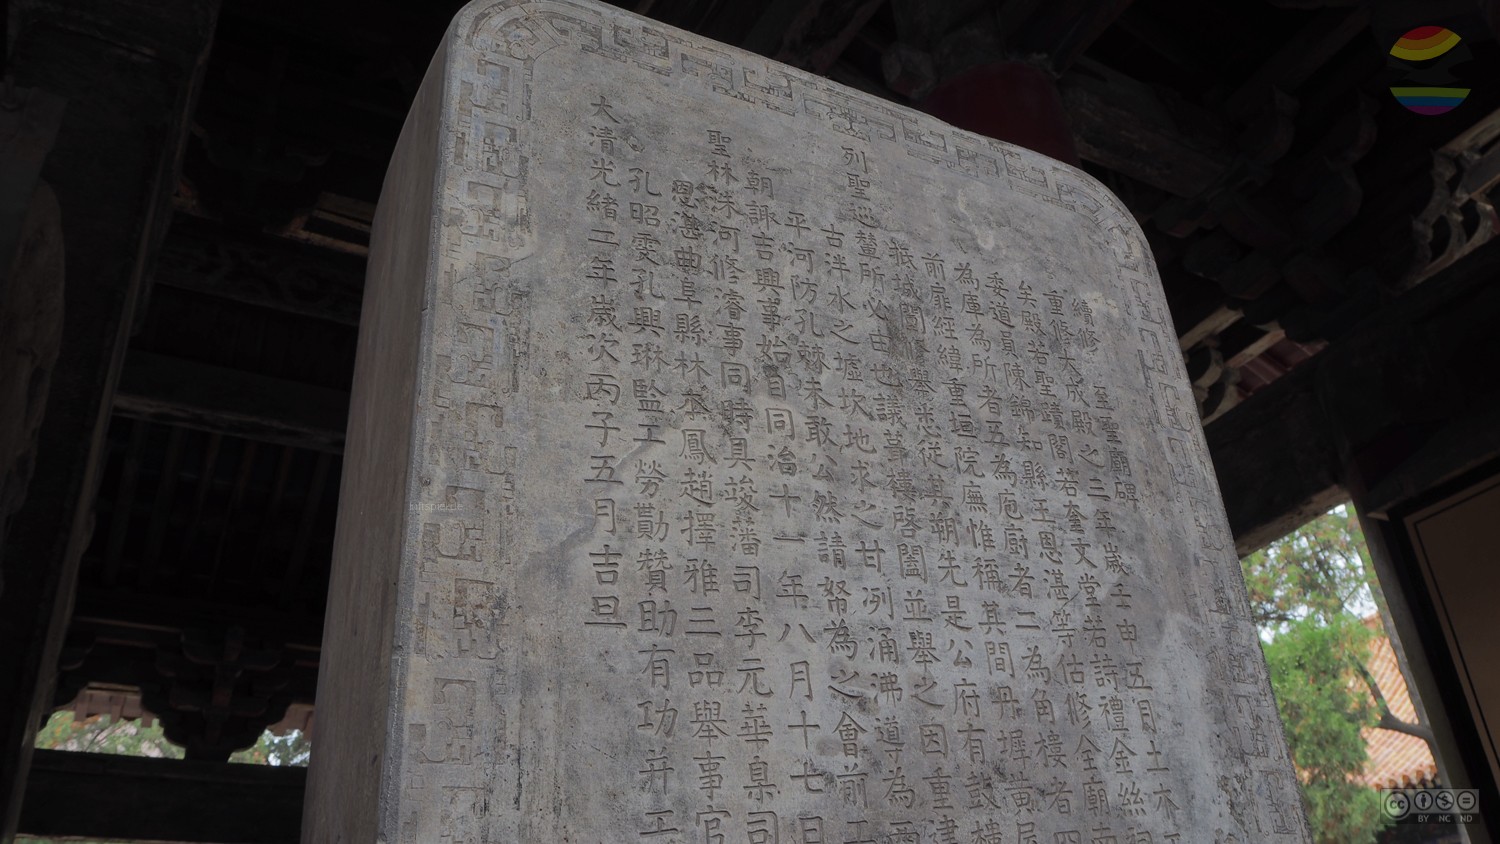 續修 至聖廟碑
重修大成殿之二年歲壬申五月土木
矣殿若聖蹟閣若奎文堂若詩禮金絲
委道員陳錦知縣王恩湛等估修全廟
為庫為所者五為庖廚者二為角樓者四
前扉經緯重垣院廡惟稱其間丹墀黃屋
祇城闕修舉悉從其朔先是公府有鼓樓
列聖巡輦所必由也議葺樓啓闔並舉之因重津
古泮水之墟坎地求之甘冽涌沸導為
平河防孔棘未敢公然請帑為之會前工
朝諏吉興事始自同治十一年八月十七日
聖林洙河修濬事同時具竣藩司李元華臬司
恩湛曲阜縣林 鳳趙擇雅二品舉事官
孔昭雯孔興琳監工勞勩贊助有功并工
大清光緒二年歲次丙子五月吉旦
BY NC ND